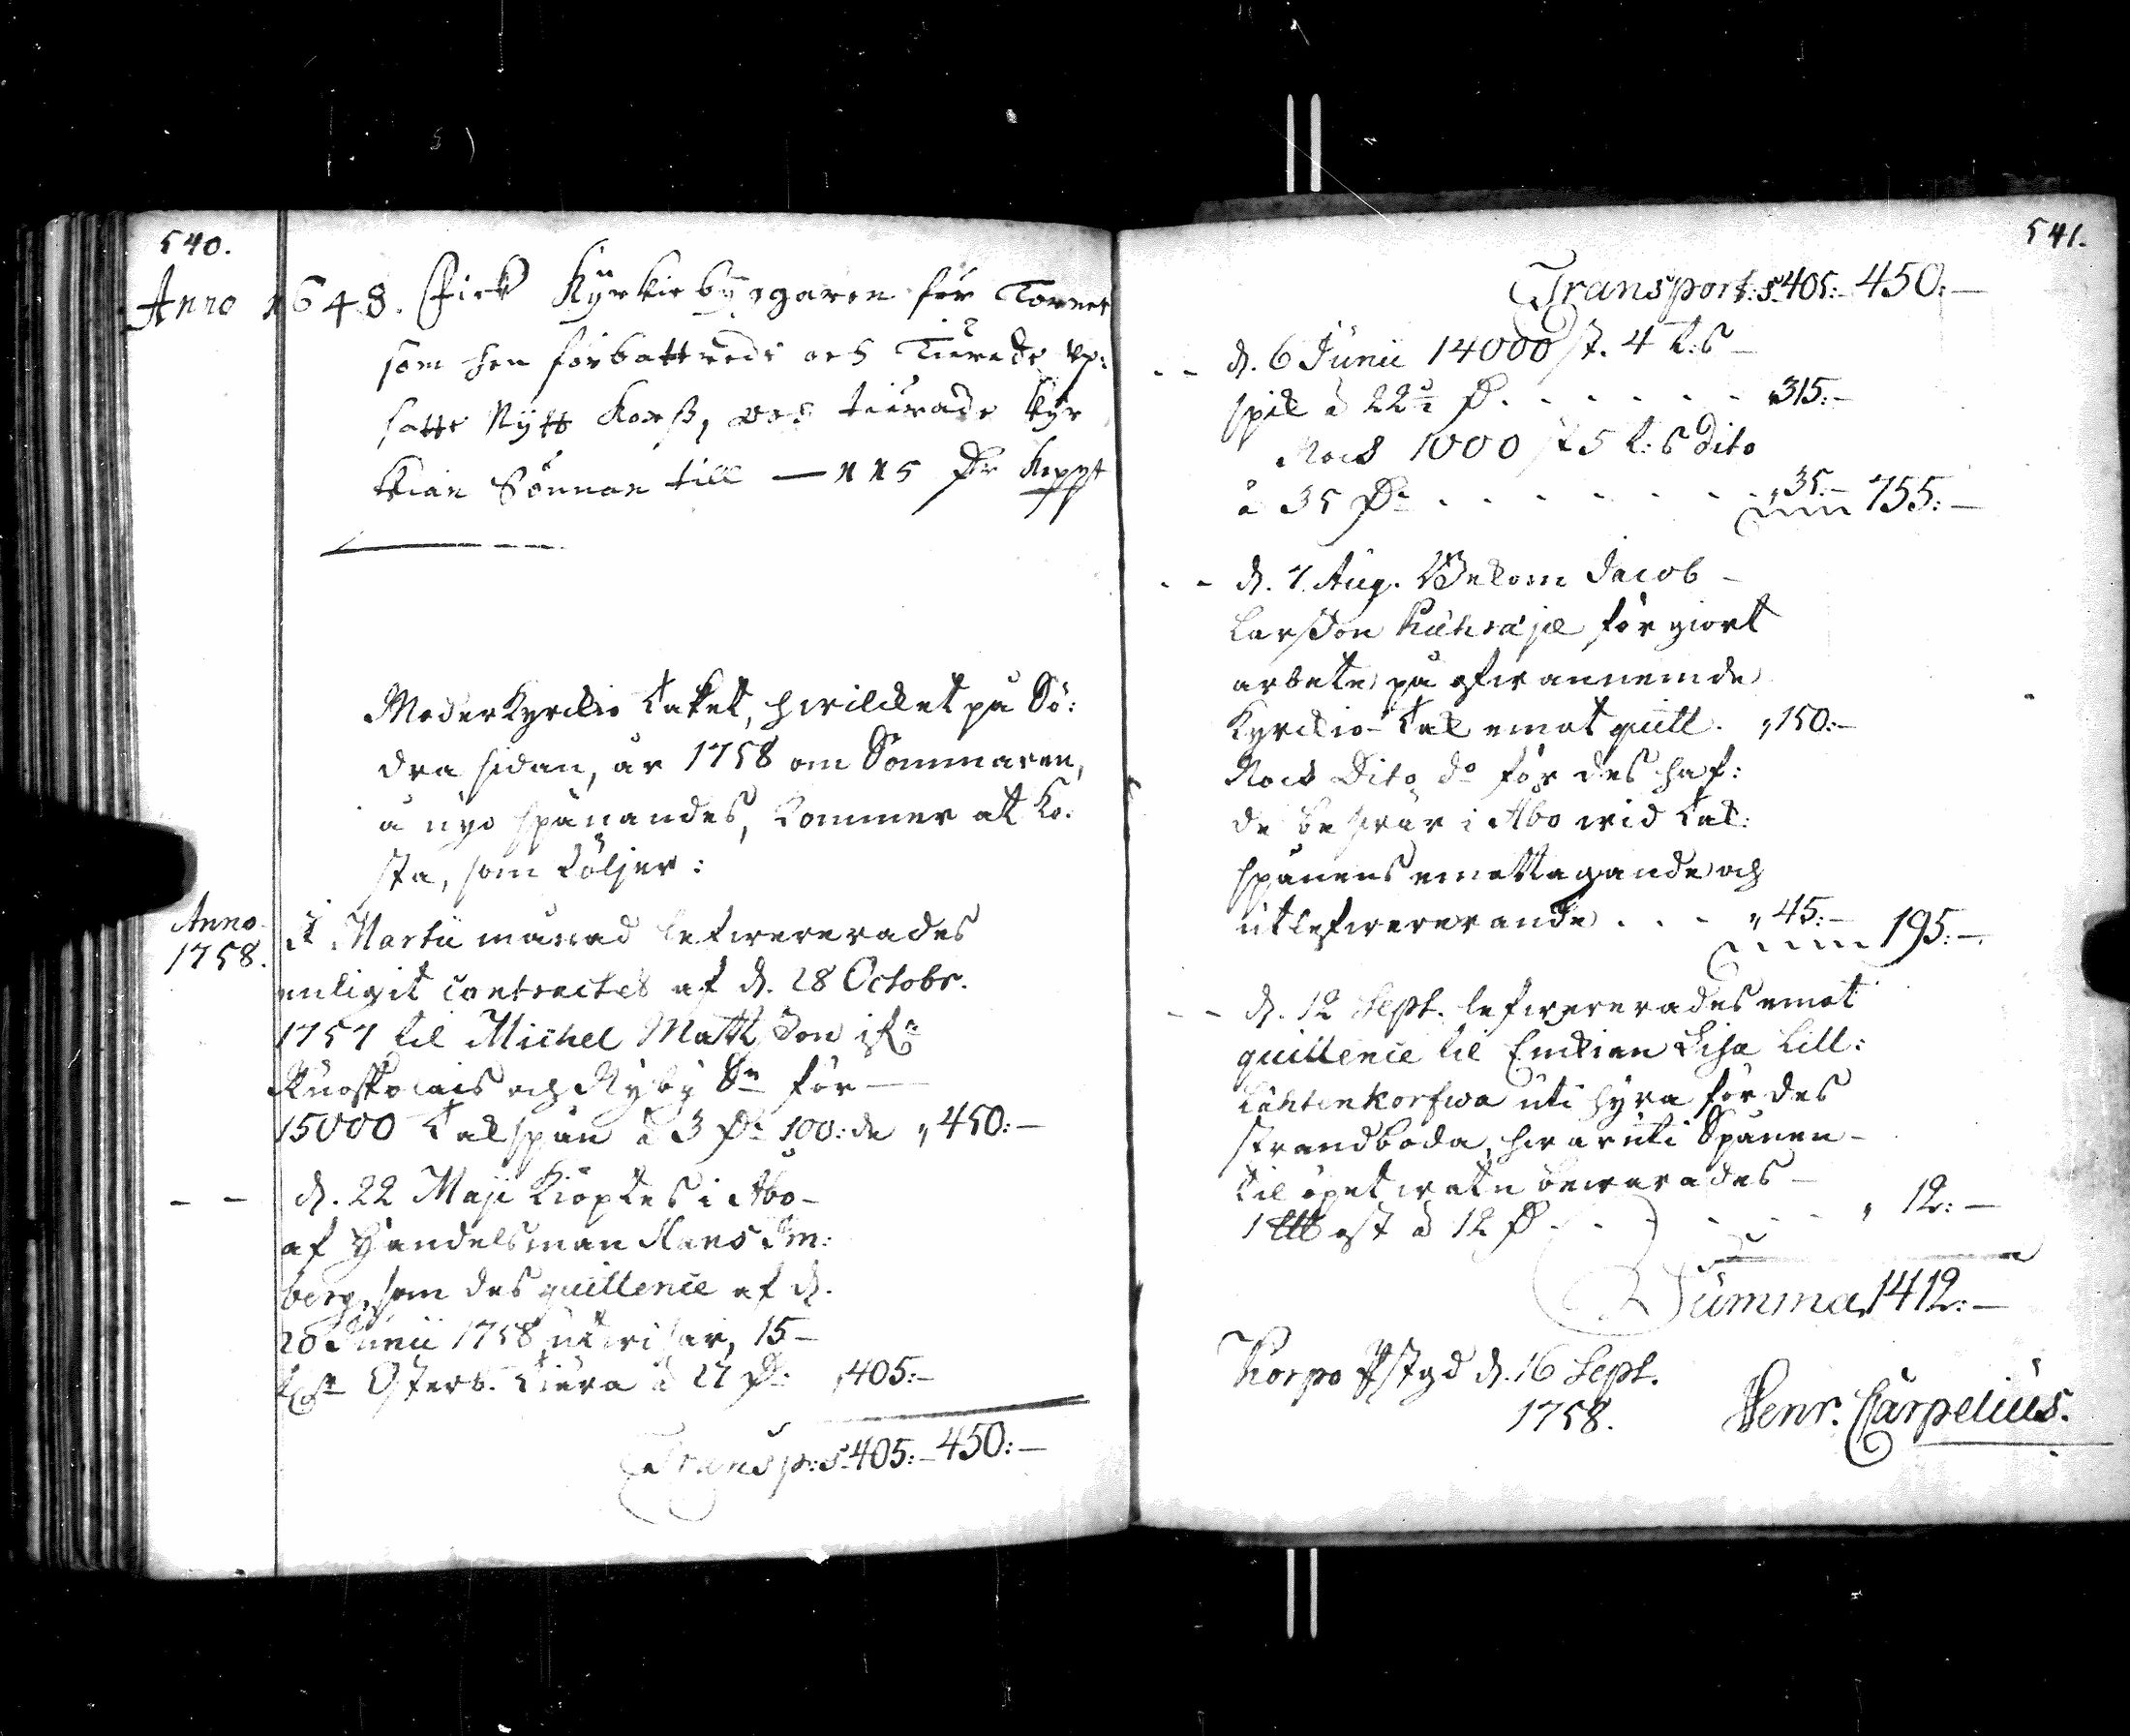 540.
Anno 1648. Fick Kyrkie byggaren för Tornet
som han förbättrade och Tiärade, up:
satte Nytt Korß, och tiärade kyr
kian Sönnan till — 115 Dr Koppt
Moderkyrckio taket, hwilcket på Sö:
dra sidan, år 1758 om Sommaren,
å nyo spånandes, kommer at ko:
sta, som följer:
Anno 1758. I Martii månad lefwererades
enligit contractet af d. 28 Octobr.
1757 til Michel Matts Son ifr
och Nyby Sn för
15000 Takspån à 3 Dr 100:de „ 450:—
— — d. 22 Maji kiöptes i Åbo
af Handelsman Hans Im:
berg, som des quittence af d.
20 Junii 1758 utwisar, 15
Österb. tiära à 27 Dr „ 405:—
Transp:s 405:— 450:—
541.
Transport:s 405:— 450:—
- - d. 6 Junii 14000 st. 4 t:s
spik à 22½ D. . . . . . . 315:—
Nock 1000 st 5 t:s dito
à 35 Dr . . . . . . . „ 35:— 755:—
- - d. 7. Aug. Bekom Jacob
Larsson för giort
arbete på ofwannemde
kyrckio-tak emot quitt. „ 150:—
Nock Dito do för des haf:
de beswär i Åbo wid tak:
spånens emottagande och
utlefwererande . . . „ 45:— 195:—
- - d. 12 Sept. lefwererades emot
quittence til Enckian Lisa Lill:
uti hyra för des
strandboda, hwaruti Spånen
til öpet watn bewarades
1 ost à 12 D . . . . . . „ 12:—
Summa 1412:—
Korpo Pstgd d. 16 Sept.
1758. Henr. Carpelius.